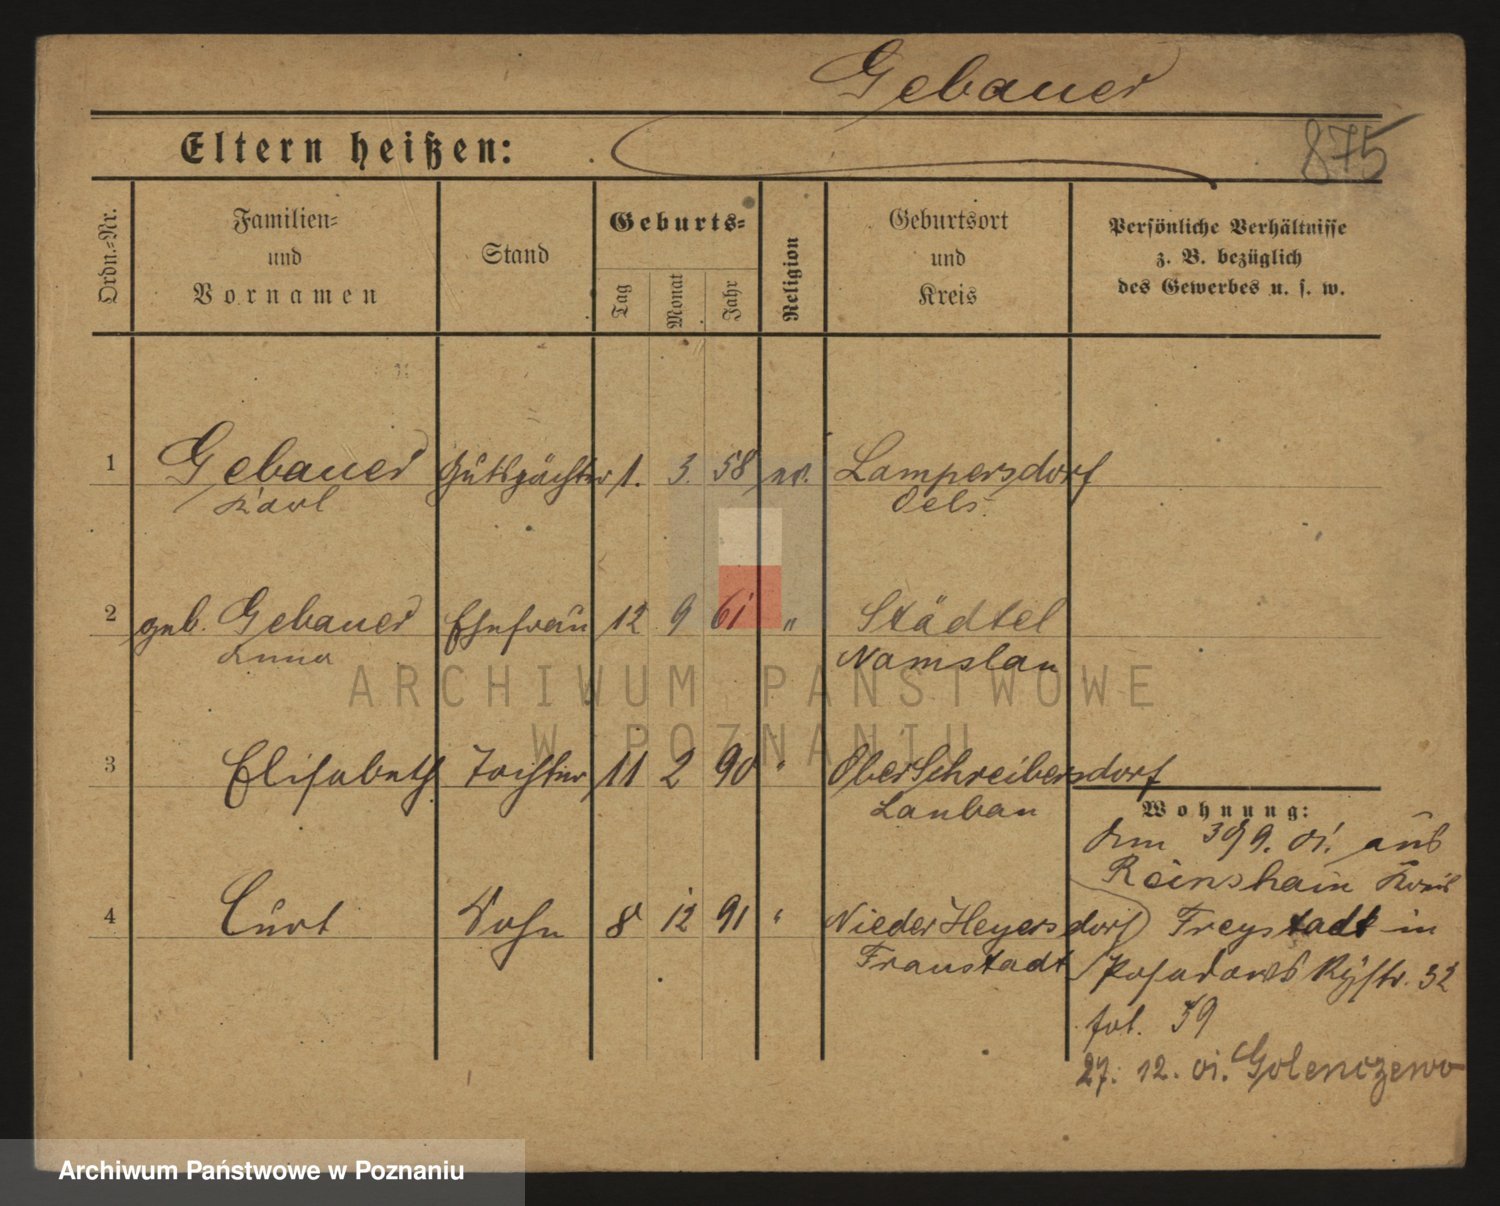 Gebauer
Eltern heißen:
875
Ordn.-Nr.
Familien-
und
Vornamen
Stand
Geburts-
Tag
Monat
Jahr
Religion
Geburtsort
und
Kreis
Persönliche Verhältnisse
z. B. bezüglich
des Gewerbes u. s. w.
1 Gebauer Gutspächter 1. 3. 58 ev. Lampersdorf
Karl Oels
2 geb. Gebauer Ehefrau 12 9 61 " Städtel
Anna Namslau
ARCHIWUM PAŃSTWOWE
W POZNANIU
3 Elisabeth Tochter 11 2 90 " Ober Schreibersdorf
Lauban
Wohnung:
Am 30/9. 01. aus
Reinshain Kreis
4 Curt Sohn 8 12 91 " Nieder Heyersdorf
Fraustadt
Freystadt in
Posadowskystr. 32
fol. 39
27. 12. 01. Golenczewo
Archiwum Państwowe w Poznaniu